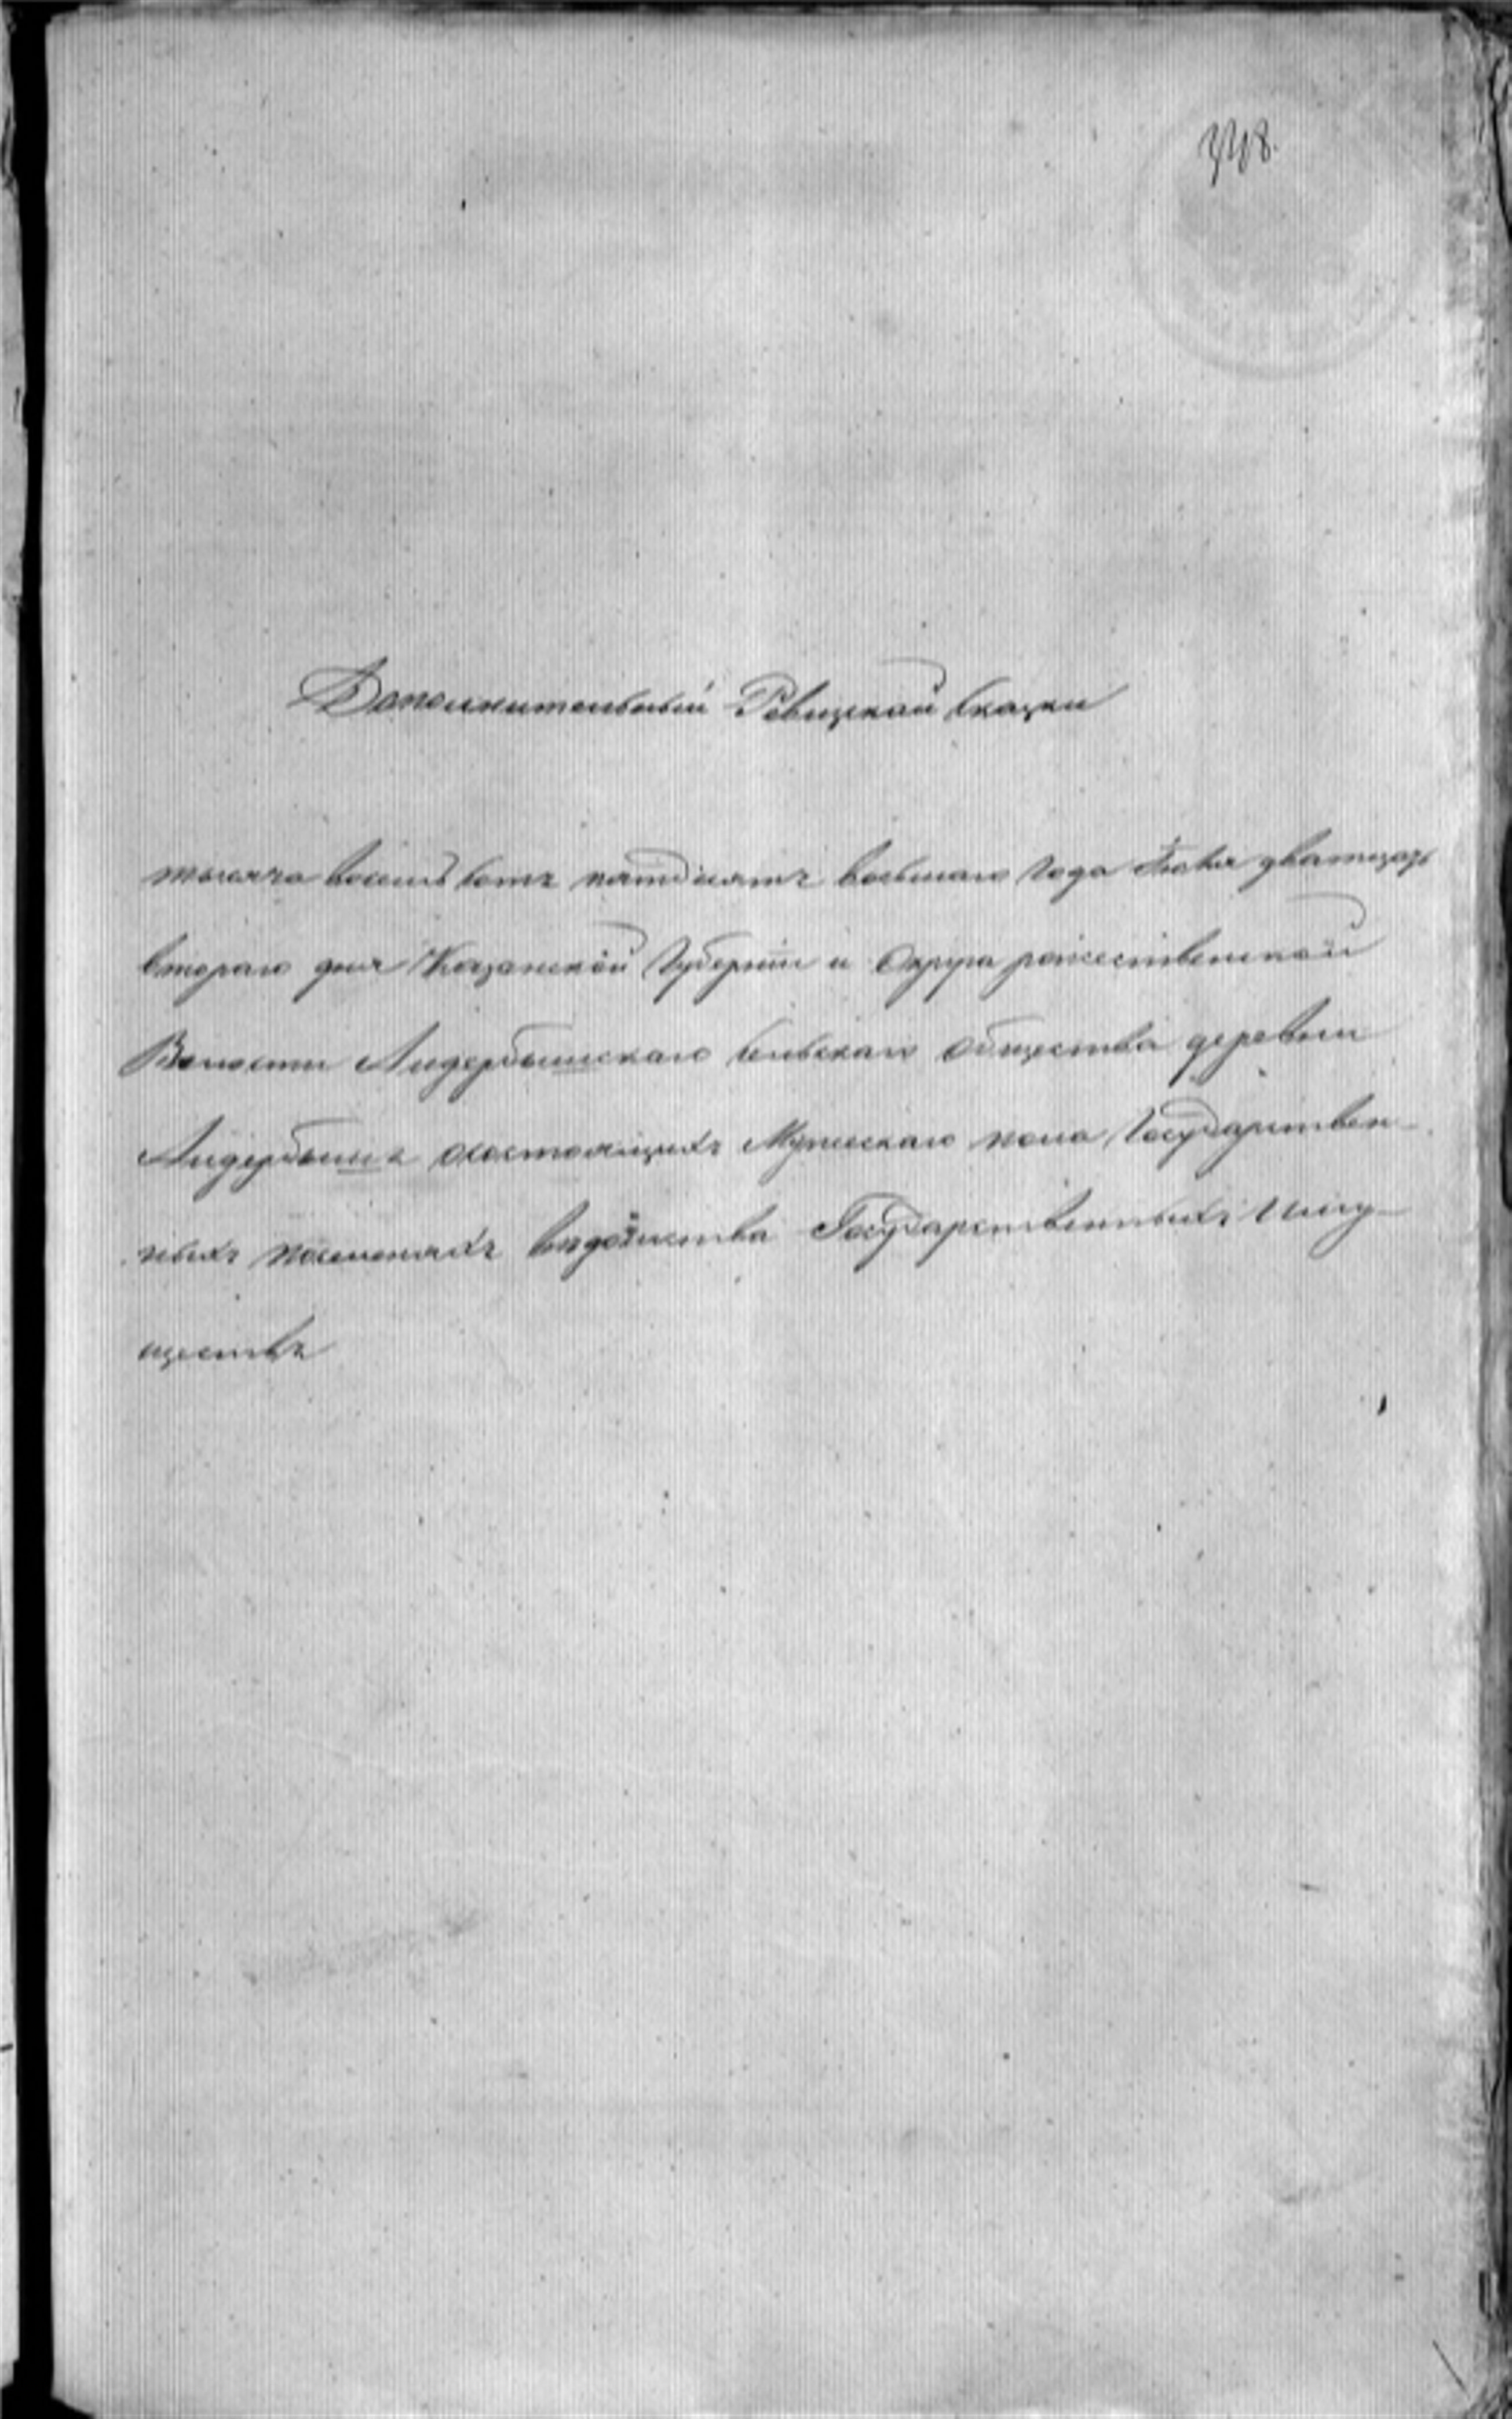 348.
Дополнительный Ревизской сказки
тысяча восемь сотъ пятдесятъ восьмаго года Июня дватцать
втораго дня Казанской Губернии и Округа рожественской
Волости Айдербышскаго сельскаго общества деревни
Айдербышъ состоящихъ Мужескаго пола Государствен-
ныхъ поселянахъ ведомства Государственныхъ Иму-
ществъ